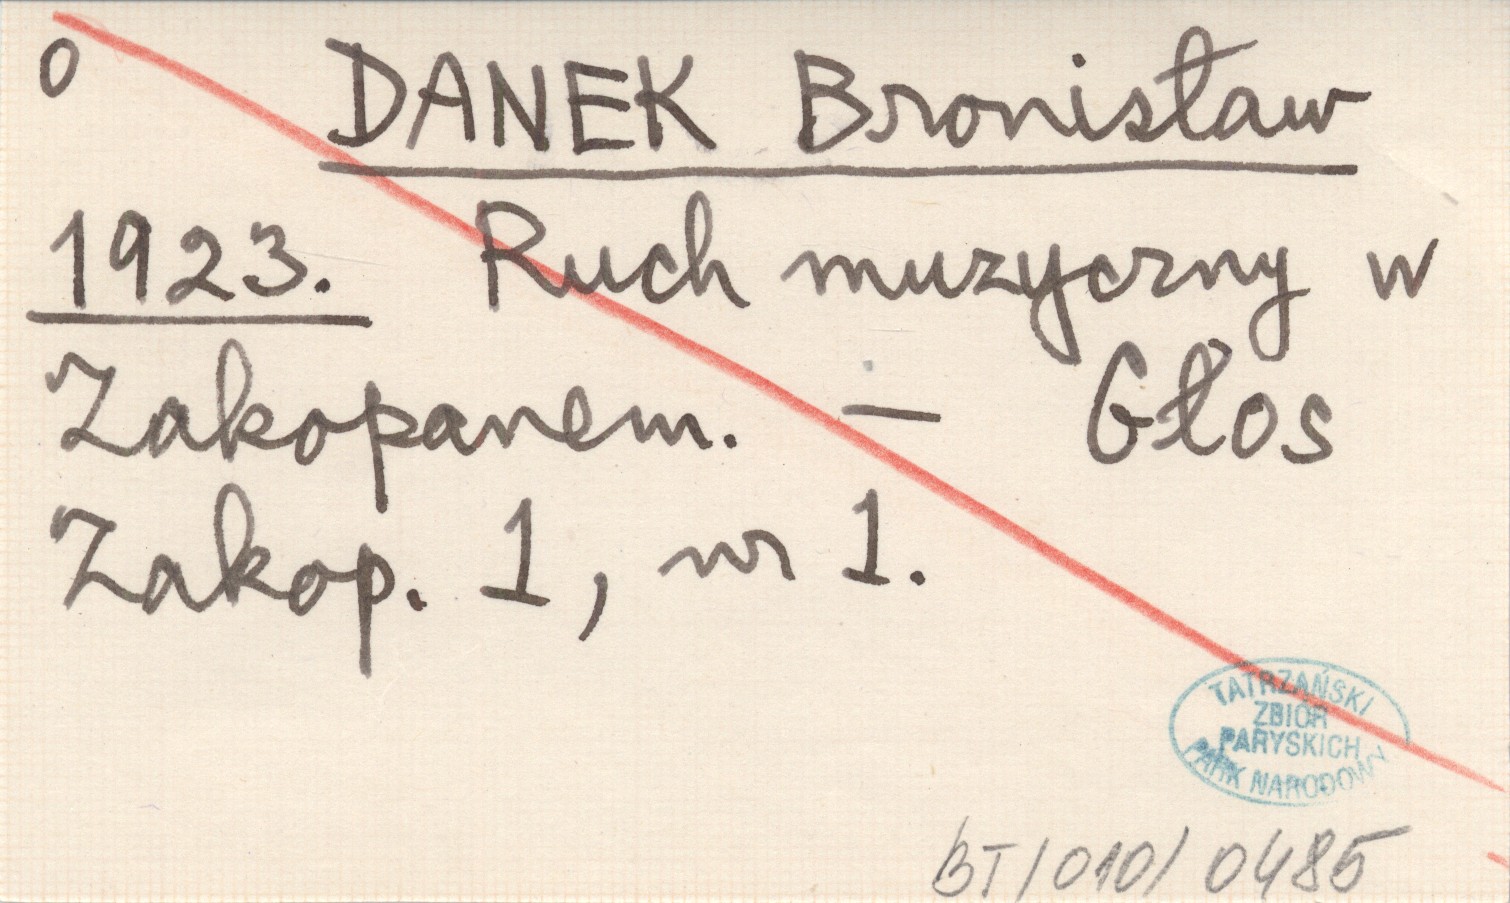 0 DANEK Bronisław
1923. Ruch muzyczny w
Zakopanem. — Głos
Zakop. 1, nr 1.
TATRZAŃSKI
ZBIÓR
PARYSKICH
PARK NARODOWY
BT/010/0485